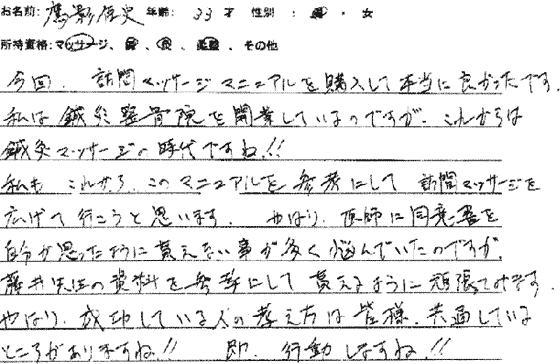 お名前: 鷹影信史 年齢: 33才 性別: ・女
所持資格: マッサージ、、その他
今回、訪問マッサージマニュアルを購入して本当に良かったです。
私は鍼灸整骨院を開業しているのですが、これからは
鍼灸マッサージの時代ですね!!
私も これから、このマニュアルを参考にして 訪問マッサージを
広げて行こうと思います。 やはり、医師に同意書を
自分が思ったように貰えない事が多く悩んでいたのですが、
藤井先生の資料を参考にして貰えるように頑張ってみます。
やはり、成功している人の考え方は皆様、共通している
ところがありますね!! 即、行動しますね!!